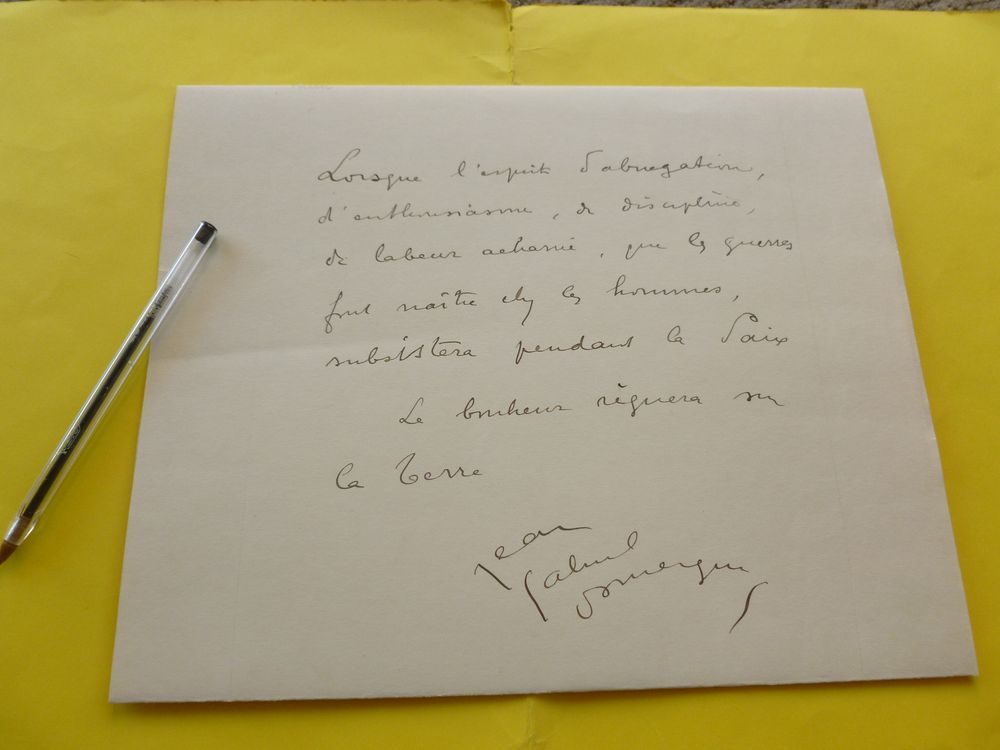 Lorsque l'esprit d'abnegation,
d'enthousiasme, de discipline,
de labeur acharné, que les guerres
font naître chez les hommes,
subsistera pendant la Paix
Le bonheur règnera sur
la Terre
Jean
Gabriel
Domergue